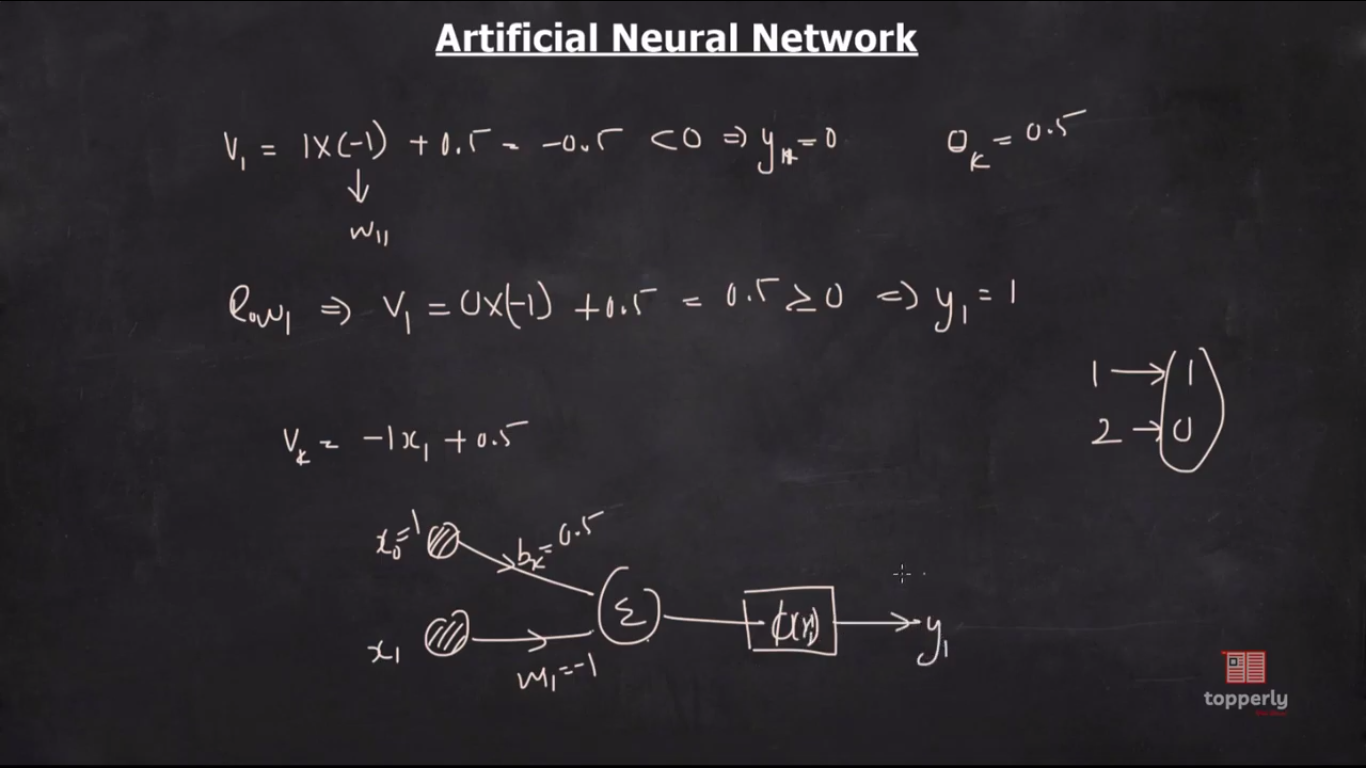 Artificial Neural Network
V₁ = 1×(-1) + 0.5 = -0.5 < 0 ⇒ yₖ = 0
θₖ = 0.5
↓
w₁₁
Row₁ ⇒ V₁ = 0×(-1) + 0.5 = 0.5 ≥ 0 ⇒ y₁ = 1
1 → 1
2 → 0
Vₖ = -1x₁ + 0.5
x₀=1
bₖ=0.5
Σ
y₁
x₁
w₁=-1
topperly